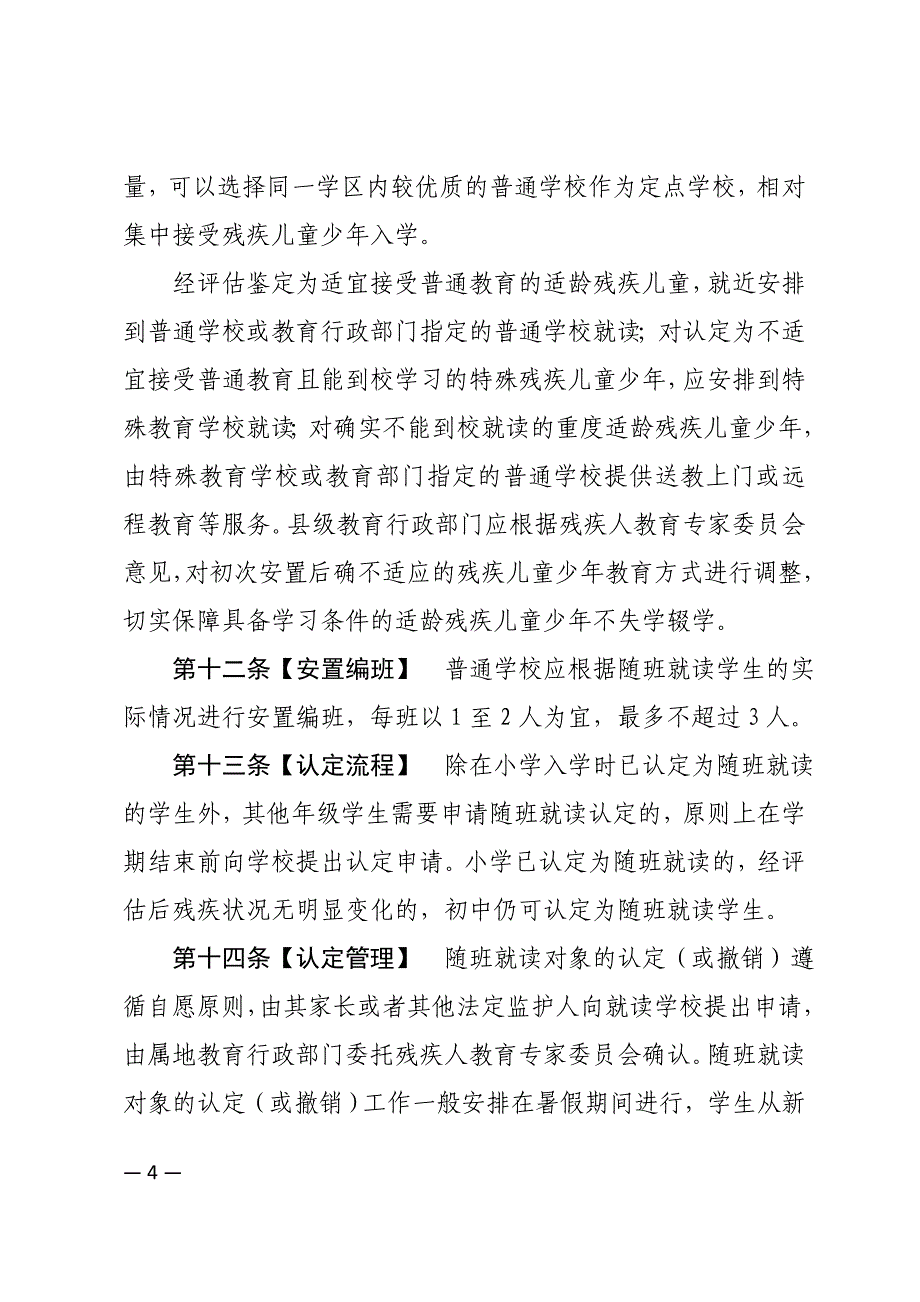 量，可以选择同一学区内较优质的普通学校作为定点学校，相对
集中接受残疾儿童少年入学。
经评估鉴定为适宜接受普通教育的适龄残疾儿童，就近安排
到普通学校或教育行政部门指定的普通学校就读；对认定为不适
宜接受普通教育且能到校学习的特殊残疾儿童少年，应安排到特
殊教育学校就读；对确实不能到校就读的重度适龄残疾儿童少年，
由特殊教育学校或教育部门指定的普通学校提供送教上门或远
程教育等服务。县级教育行政部门应根据残疾人教育专家委员会
意见，对初次安置后确不适应的残疾儿童少年教育方式进行调整，
切实保障具备学习条件的适龄残疾儿童少年不失学辍学。
第十二条【安置编班】　普通学校应根据随班就读学生的实
际情况进行安置编班，每班以1至2人为宜，最多不超过3人。
第十三条【认定流程】　除在小学入学时已认定为随班就读
的学生外，其他年级学生需要申请随班就读认定的，原则上在学
期结束前向学校提出认定申请。小学已认定为随班就读的，经评
估后残疾状况无明显变化的，初中仍可认定为随班就读学生。
第十四条【认定管理】　随班就读对象的认定（或撤销）遵
循自愿原则，由其家长或者其他法定监护人向就读学校提出申请，
由属地教育行政部门委托残疾人教育专家委员会确认。随班就读
对象的认定（或撤销）工作一般安排在暑假期间进行，学生从新
— 4 —